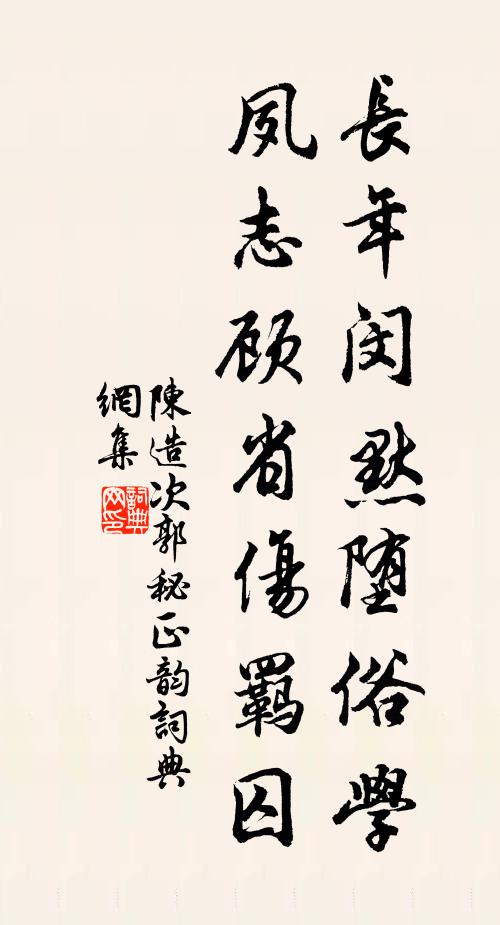 長年闵默堕俗學
夙志顾省傷羈囚
陳造次郭秘正韵詞典
網集
詞典网印